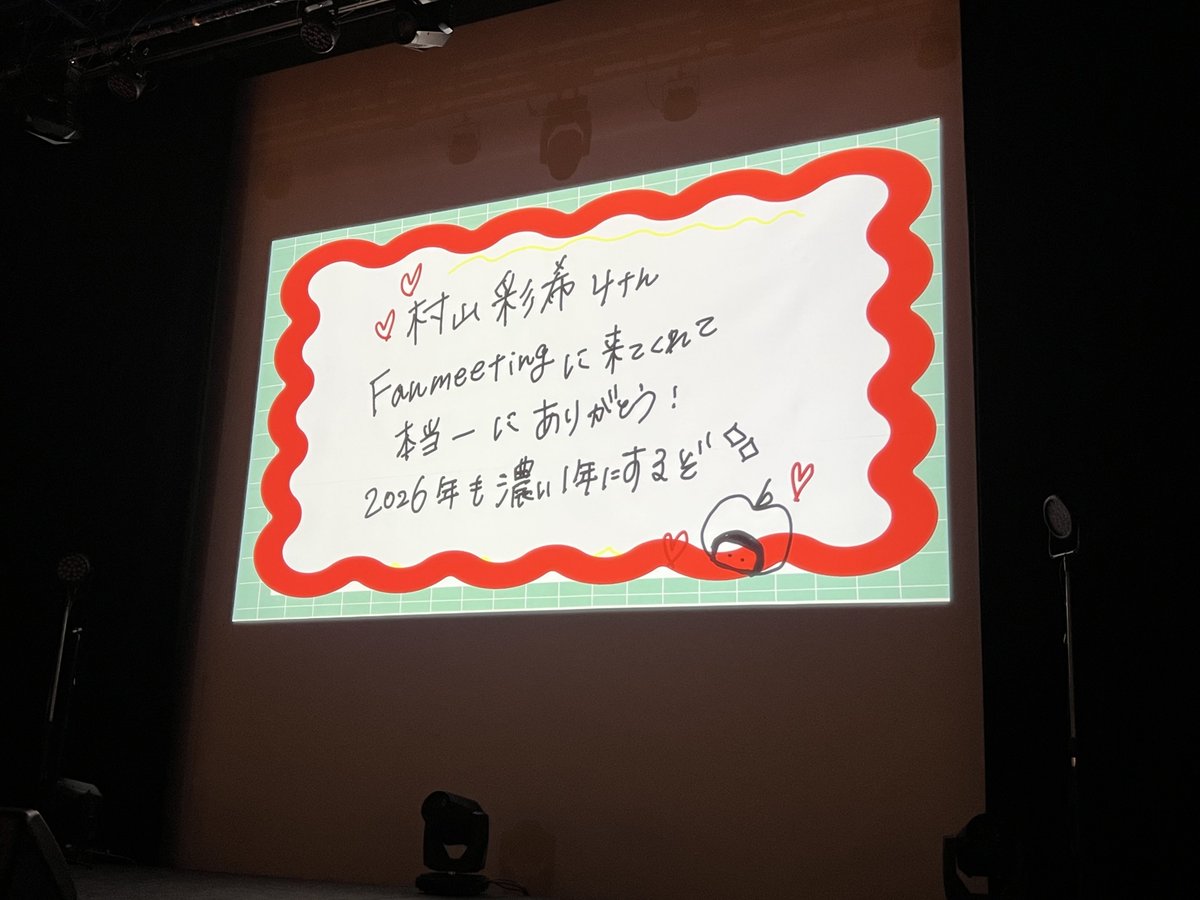 村山彩希 4th
Fanmeetingに来てくれて
本当ーにありがとう!
2026年も濃い1年にするぞ"